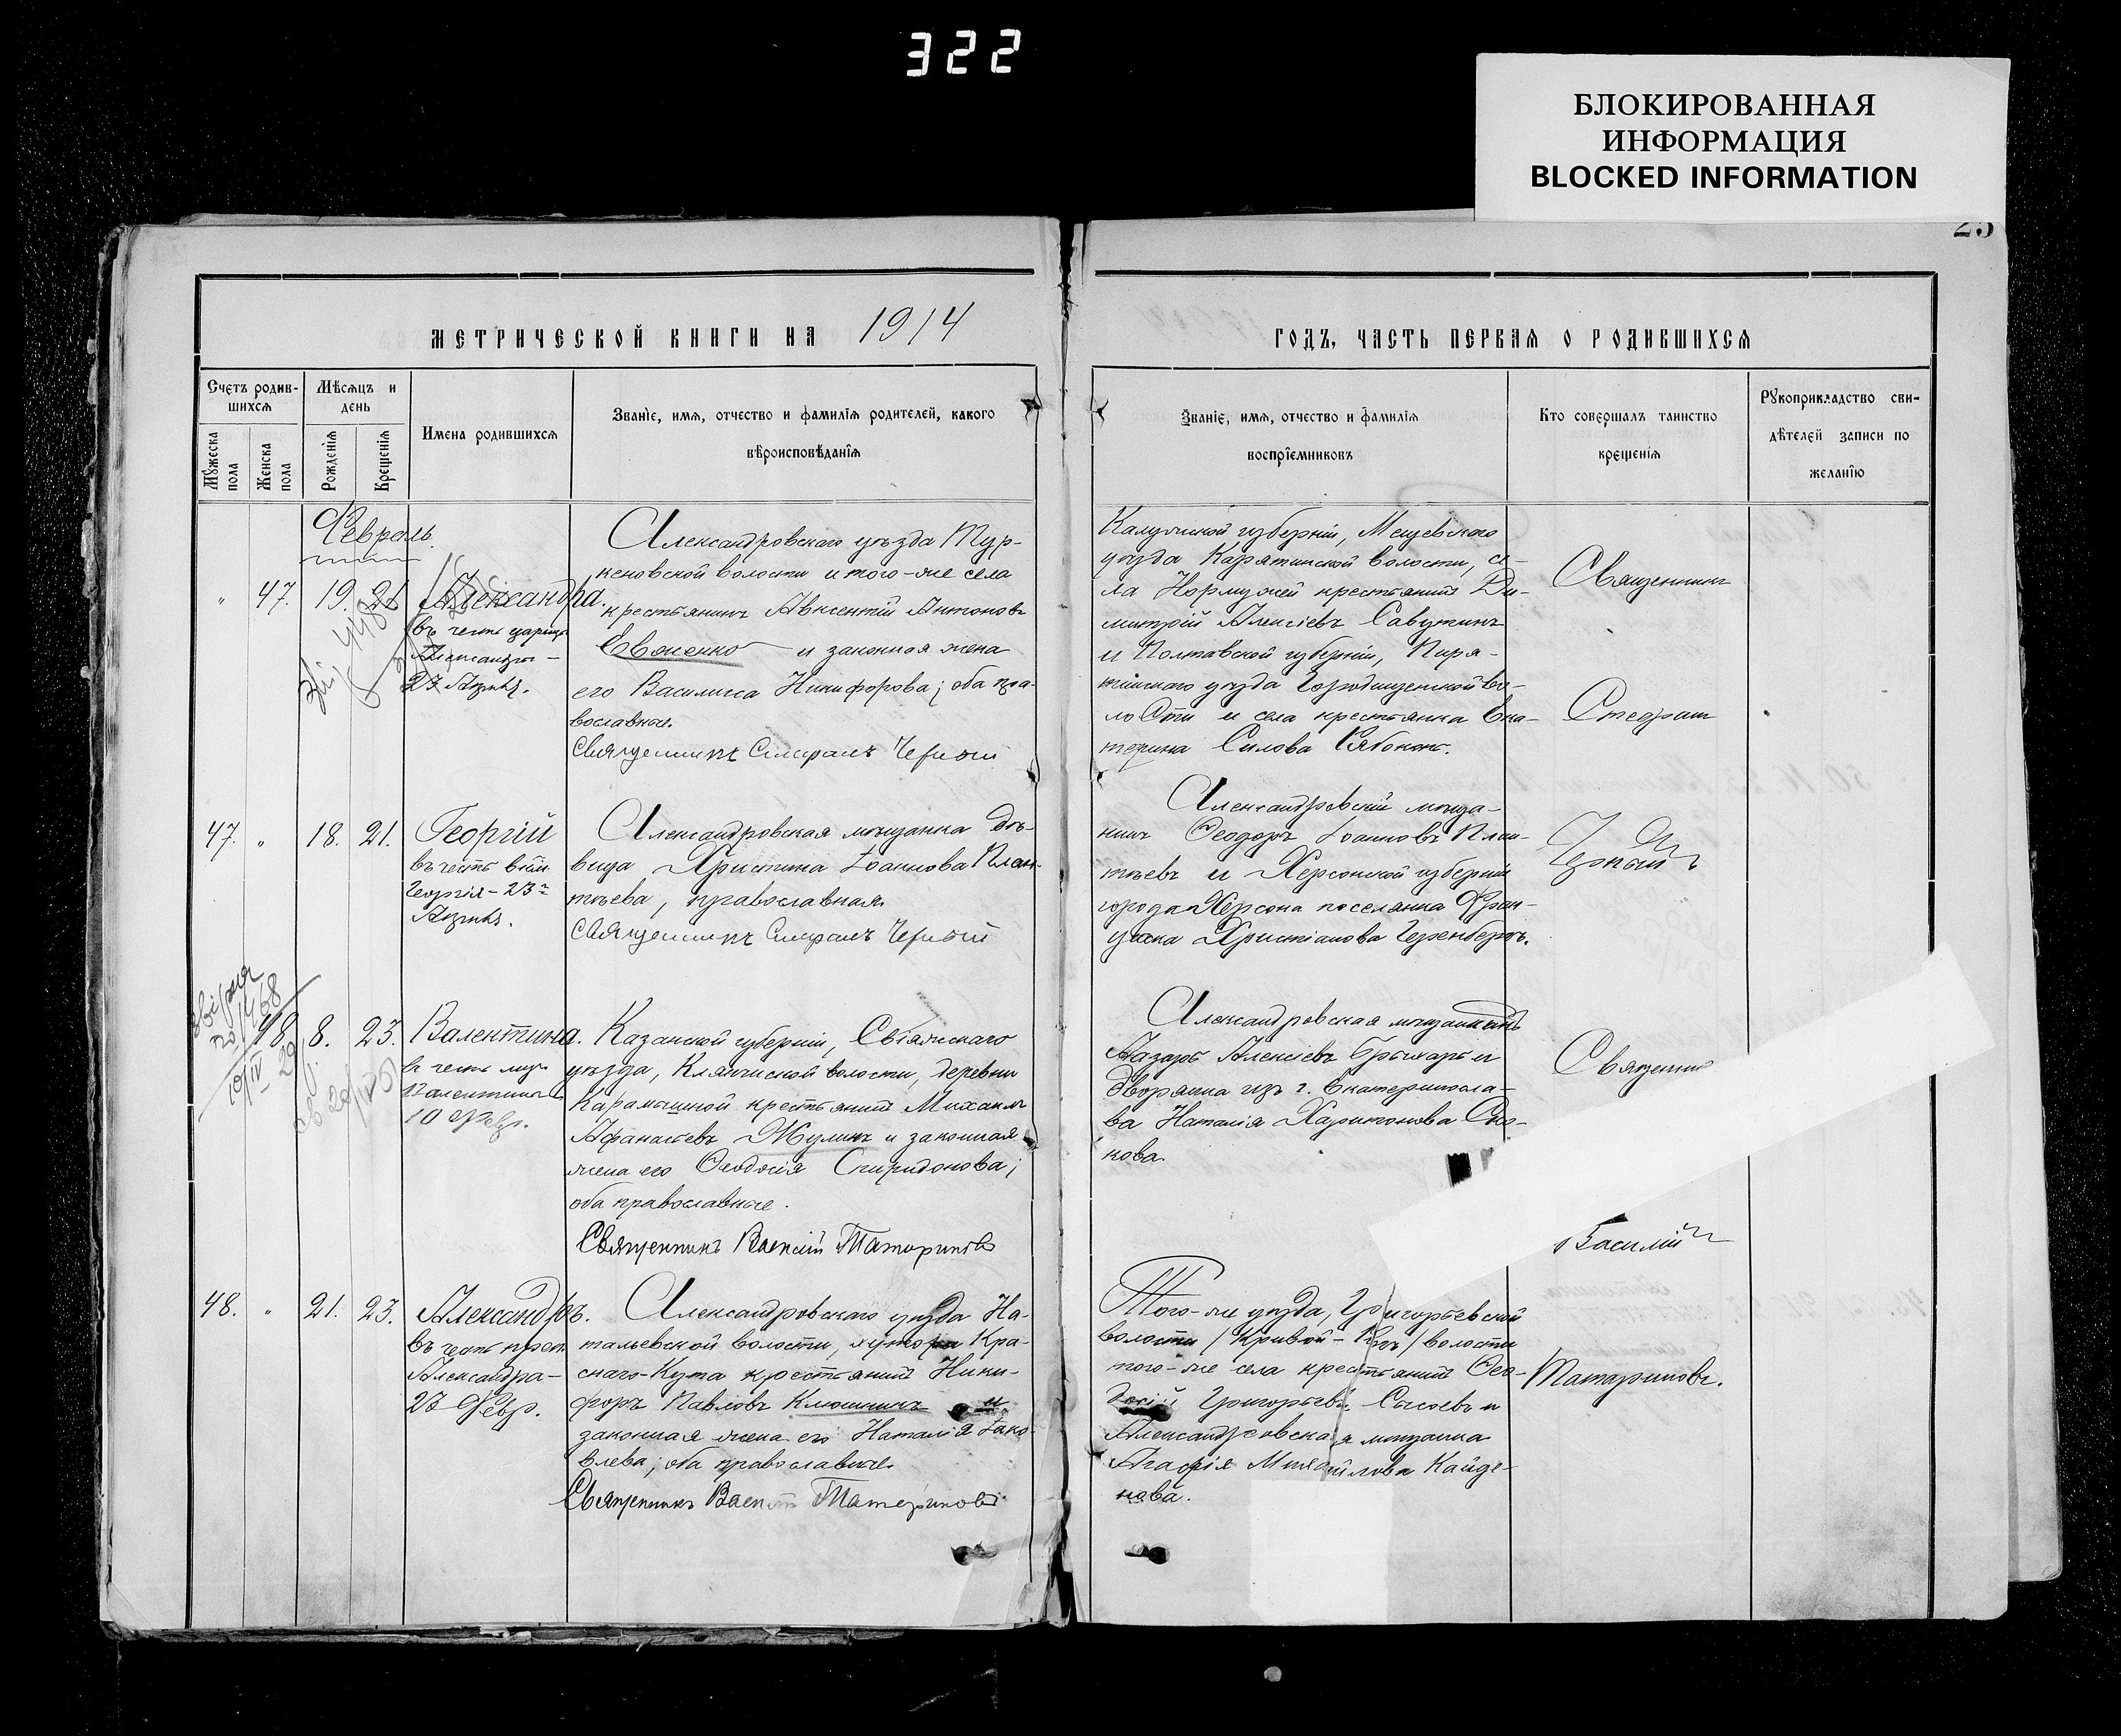 322
БЛОКИРОВАННАЯ
ИНФОРМАЦИЯ
BLOCKED INFORMATION
МЕТРИЧЕСКОЙ КНИГИ НА 1914
ГОДЪ, ЧАСТЬ ПЕРВАЯ О РОДИВШИХСЯ
Счетъ родив-
шихся
Мѣсяцъ и
день
Мужеска
пола
Женска
пола
Рожденія
Крещенія
Имена родившихся
Званіе, имя, отчество и фамилія родителей, какого
вѣроисповѣданія
Званіе, имя, отчество и фамилія
воспріемниковъ
Кто совершалъ таинство
крещенія
Рукоприкладство сви-
дѣтелей записи по
желанію
Февраль.
" 47. 19. 21
Александра.
въ честь царицы
Александры -
23 Апрѣл.
Александровскаго уѣзда Тур-
кеновской волости и того-же села
крестьянинъ Авксентій Антоновъ
Евженко и законная жена
его Василисса Никифорова; оба пра-
вославные.
Священникъ Стефанъ Черный
Калужской губерніи, Мещевскаго
уѣзда Карятинской волости, се-
ла крестьянинъ Ди-
митрій Алексіевъ Савуткинъ
и Полтавской губерніи, Пиря-
тинскаго уѣзда Городищенской во-
лости и села крестьянка Ека-
терина Силова
Священникъ
Стефанъ
Черный
47. " 18. 21.
Георгій
въ честь вмч.
Георгія - 23
Апрѣл.
Александровская мѣщанка дѣ-
вица Христина ІоанноваПлак-
тѣева, православная.
Священникъ Стефанъ Черный
Александровскій мѣща-
нинъ Ѳеодоръ Іоанновъ Плак-
тѣевъ и Херсонской губерніи
города Херсона поселянка Фран-
циска Христіанова
48 8. 23.
Валентина.
въ честь муч.
Валентины
10 Февр.
Казанской губерніи, Свіяжскаго
уѣзда, Клянчиской волости, деревни
Карамышной крестьянинъ Михаилъ
Афанасіевъ Жулинъ и законная
жена его Ѳеодосія Спиридонова;
оба православные.
Священникъ Василій Татариновъ
Александровская
Лазарь Алексіевъ и
дворянка изъ г. Екатериносла-
ва Наталія Харитонова
нова.
Священникъ
Василій
Татариновъ.
48. " 21. 23.
Александръ.
въ честь преп.
Александра -
23 Февр.
Александровскаго уѣзда На-
тальевской волости, хутора Кра-
снаго-Кута крестьянинъ Ники-
форъ Павловъ Клюшникъ и
законная жена его Наталія Іако-
влева; оба православные.
Священникъ Василій Татариновъ
Того-же уѣзда, Григорьевской
волости /Кривой-Рогъ/ волости
того-же села крестьянинъ Ѳео-
досій Григорьевъ Сысоевъ и
Александровская мѣщанка
Агафія Михайлова Кайда-
нова.